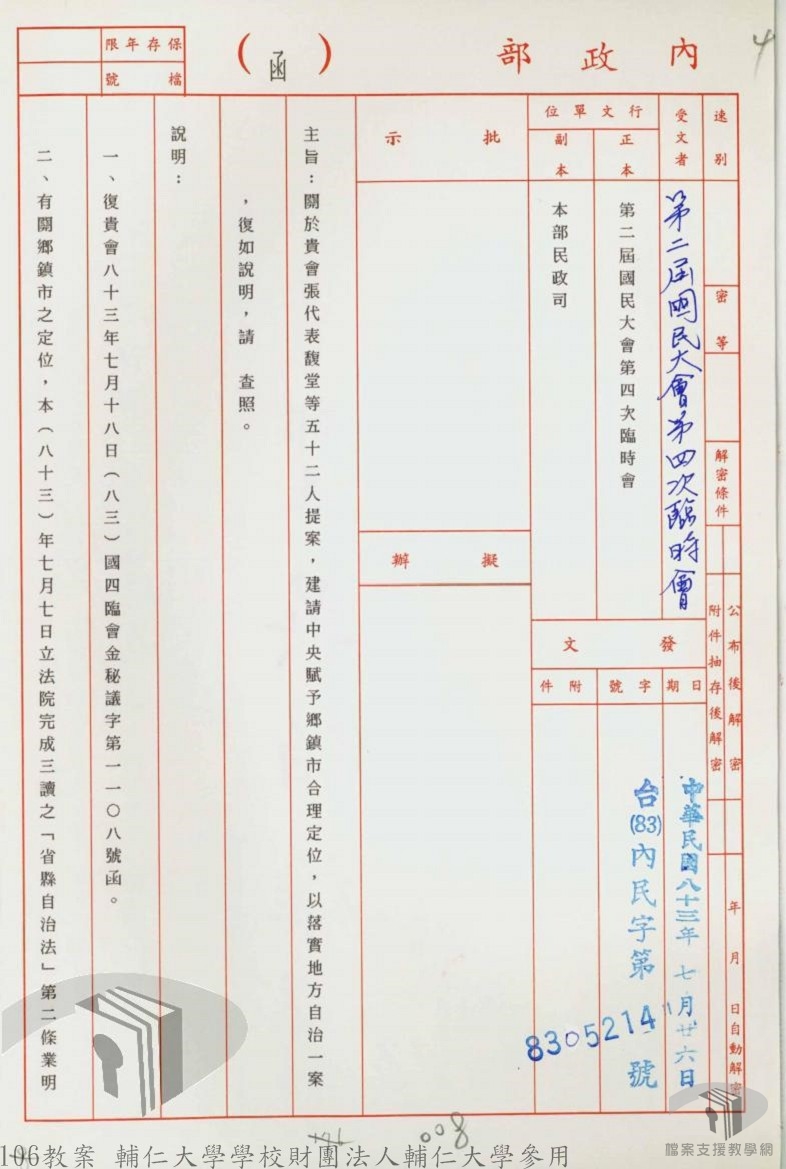 內政部
（函）
保存年限
檔號
速別
密等
解密條件
公布後解密
附件抽存後解密
年 月 日自動解密
受文者
第二屆國民大會第四次臨時會
行文單位
正本
第二屆國民大會第四次臨時會
副本
本部民政司
發文
日期
中華民國八十三年七月廿六日
字號
台(83)內民字第8305214號
附件
批示
擬辦
主旨：關於貴會張代表馥堂等五十二人提案，建請中央賦予鄉鎮市合理定位，以落實地方自治一案
，復如說明，請 查照。
說明：
一、復貴會八十三年七月十八日（八三）國四臨會金秘議字第一一○八號函。
二、有關鄉鎮市之定位，本（八十三）年七月七日立法院完成三讀之「省縣自治法」第二條業明
008
106教案 輔仁大學學校財團法人輔仁大學參用
檔案支援教學網